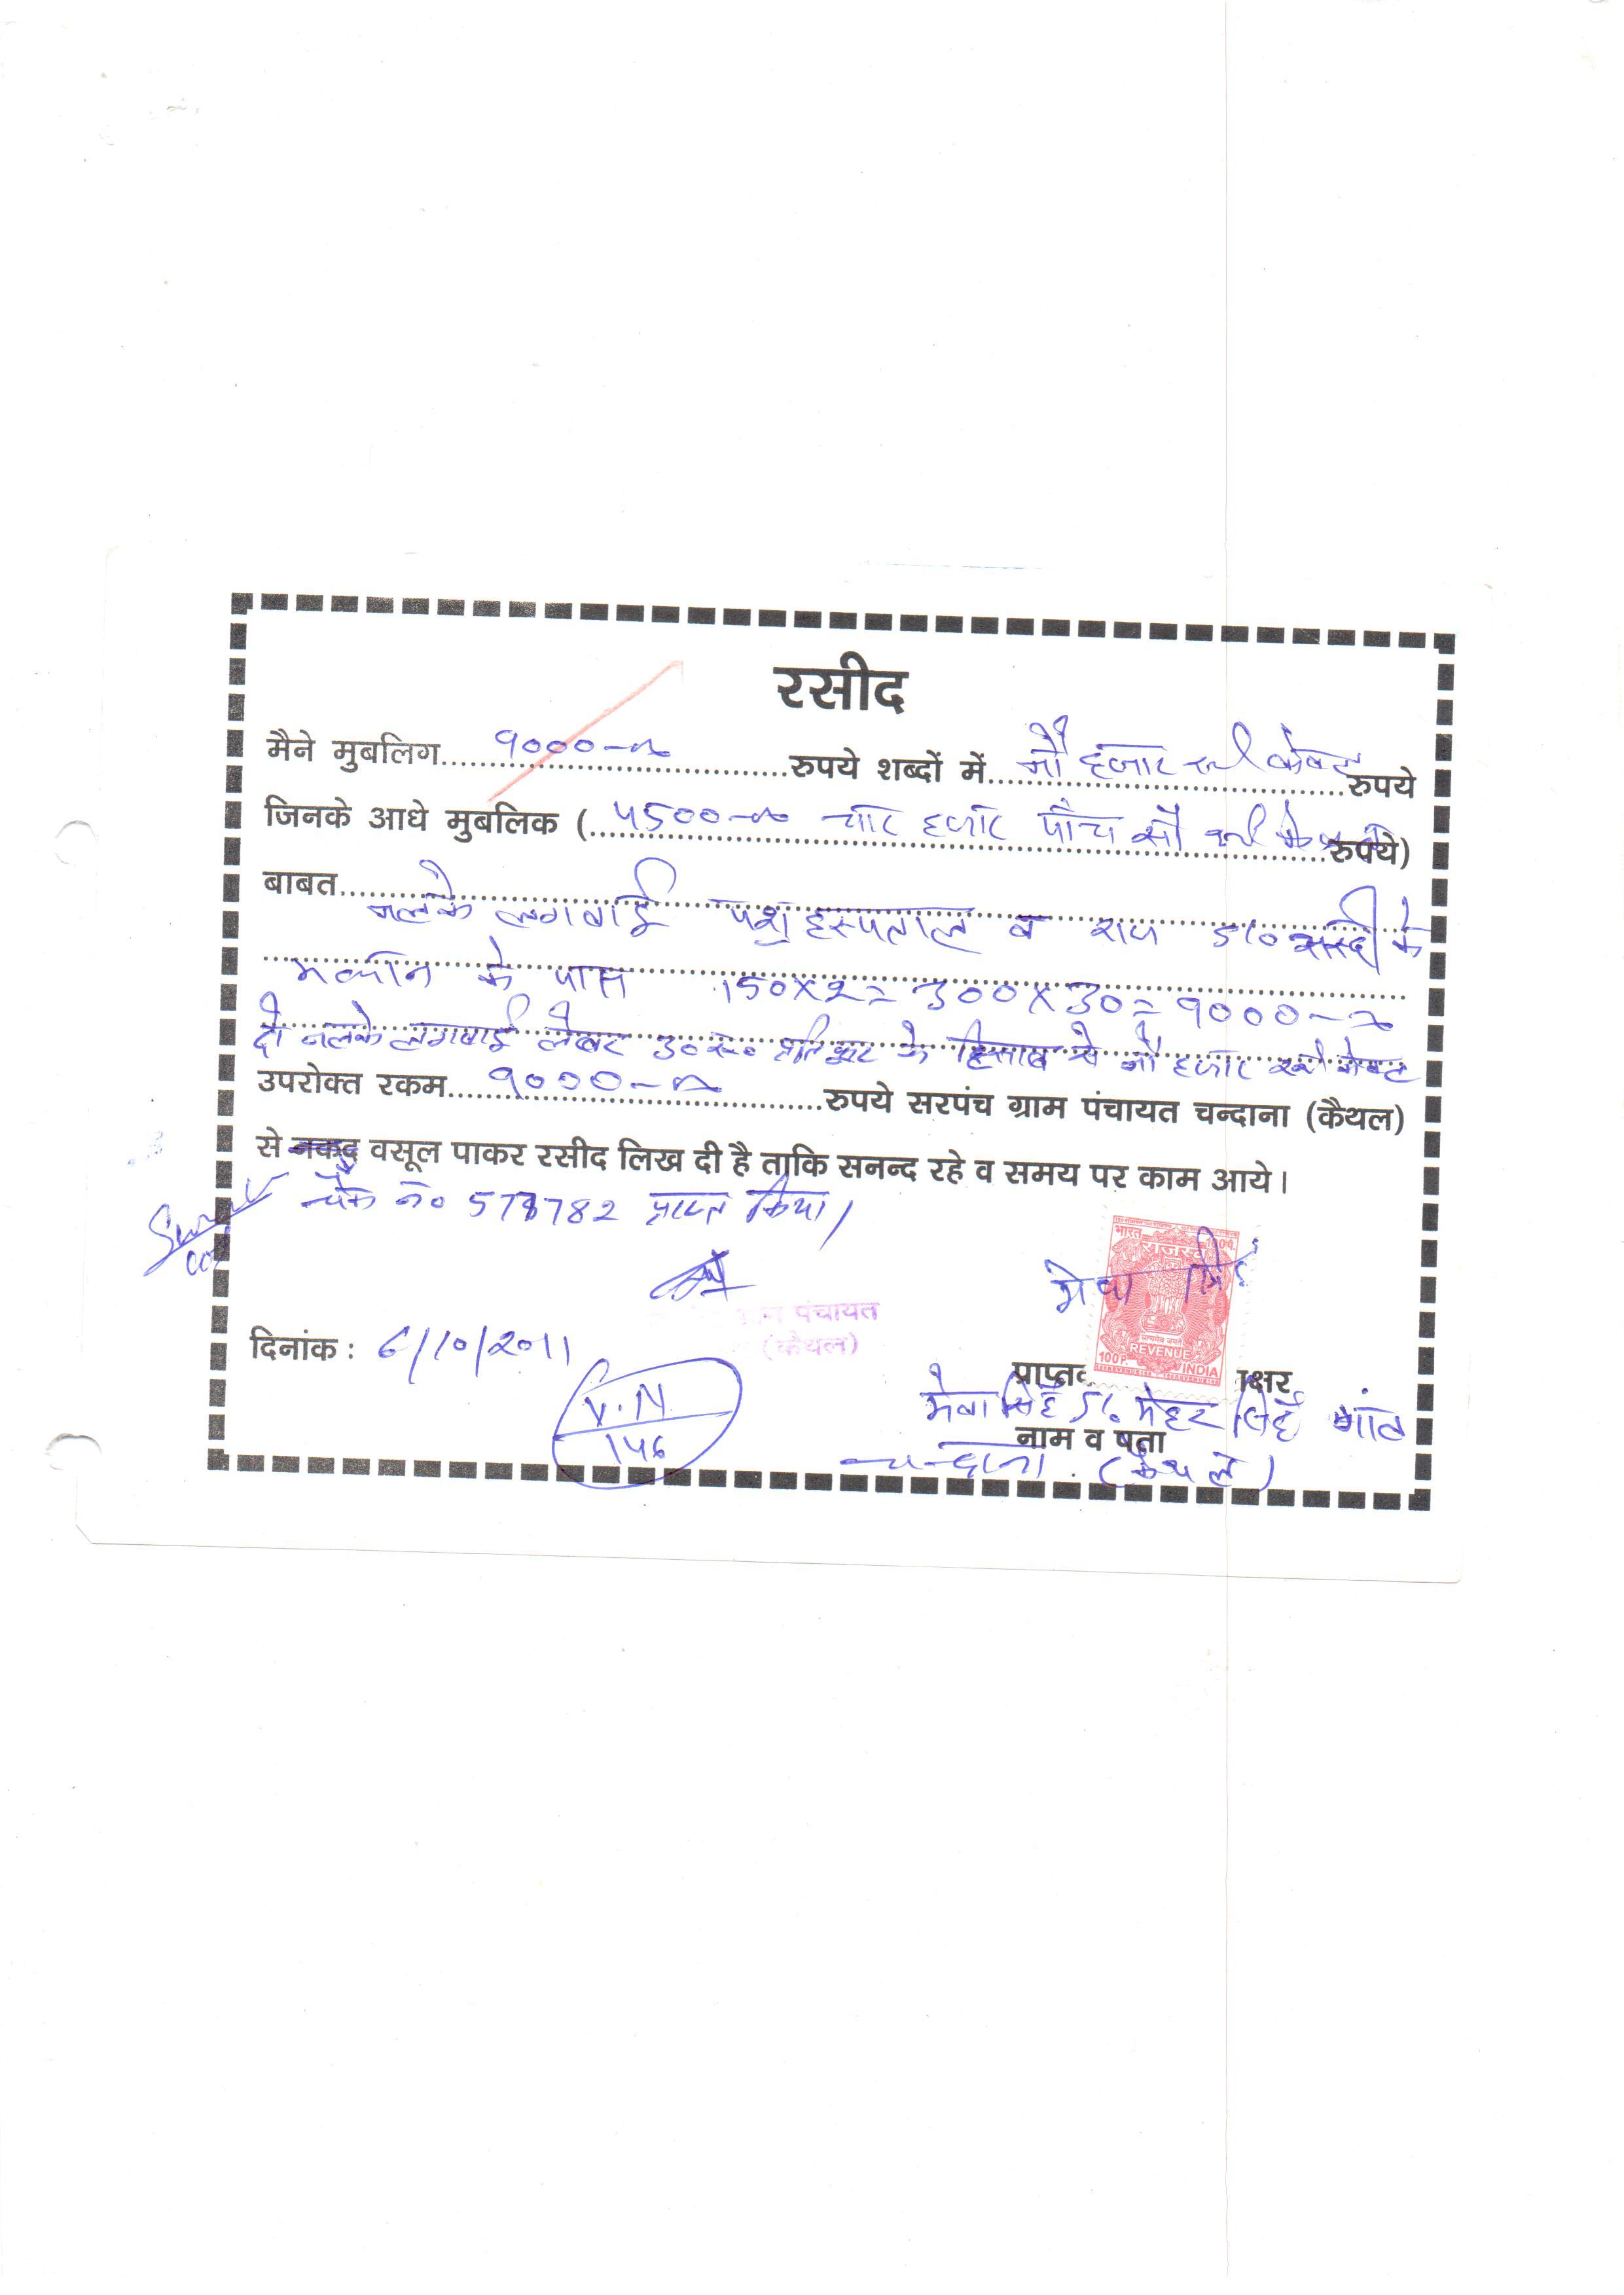 रसीद
मैने मुबलिग 9000-00 रुपये शब्दों में नौ हजार रु० केवल रुपये
जिनके आधे मुबलिक ( 4500-00 चार हजार पाँच सौ रु० केवल रुपये)
बाबत नलके लगवाई पशु हस्पताल व राज S/o के
मकान के पास 150x2=300x30=9000-00
दो नलके लगवाई लेबर 30रू० प्रति फुट के हिसाब से नौ हजार रु० केवल
उपरोक्त रकम 9000-00 रुपये सरपंच ग्राम पंचायत चन्दाना (कैथल)
से नकद वसूल पाकर रसीद लिख दी है ताकि सनन्द रहे व समय पर काम आये।
चैक नं० 578782 प्राप्त किया।
भारत राजस्व 100P.
मेवा सिंह
पंचायत
(कैथल)
सत्यमेव जयते
REVENUE
100P. INDIA
दिनांक : 6/10/2011
V.N
146
मेवा सिंह S/o मेहर सिंह गांव
नाम व पता
चन्दाना (कैथल)